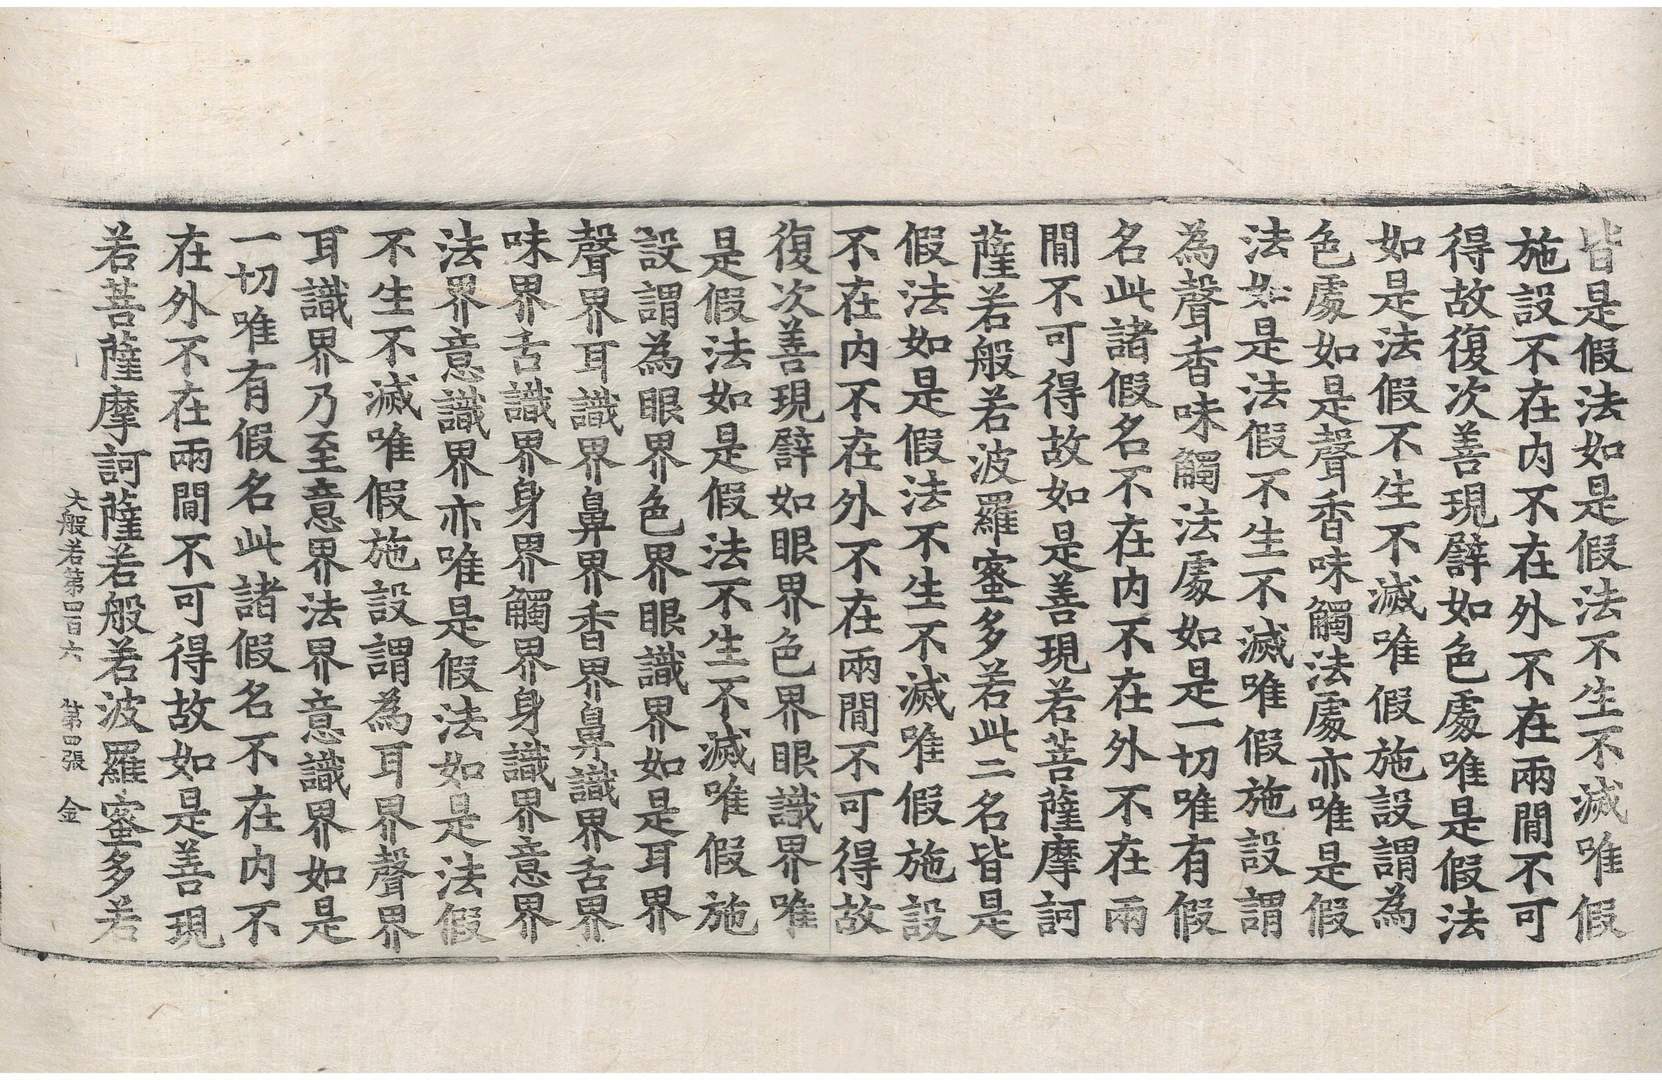 皆是假法如是假法不生不滅唯假
施設不在内不在外不在兩閒不可
得故復次善現譬如色處唯是假法
如是法假不生不滅唯假施設謂為
色處如是聲香味觸法處亦唯是假
法如是法假不生不滅唯假施設謂
為聲香味觸法處如是一切唯有假
名此諸假名不在内不在外不在兩
閒不可得故如是善現若菩薩摩訶
薩若般若波羅蜜多若此二名皆是
假法如是假法不生不滅唯假施設
不在内不在外不在兩閒不可得故
復次善現譬如眼界色界眼識界唯
是假法如是假法不生不滅唯假施
設謂為眼界色界眼識界如是耳界
聲界耳識界鼻界香界鼻識界舌界
味界舌識界身界觸界身識界意界
法界意識界亦唯是假法如是法假
不生不滅唯假施設謂為耳界聲界
耳識界乃至意界法界意識界如是
一切唯有假名此諸假名不在内不
在外不在兩閒不可得故如是善現
若菩薩摩訶薩若般若波羅蜜多若
大般若第四百六 第四張 金